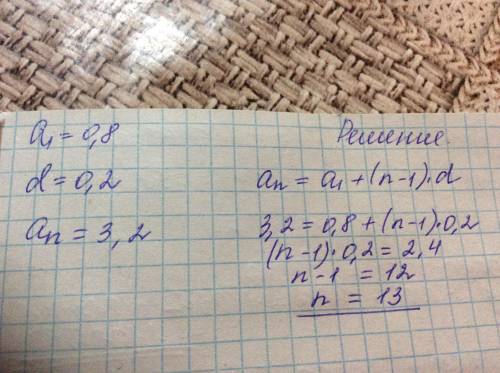 a₁ = 0,8
d = 0,2
aₙ = 3,2
Решение.
aₙ = a₁ + (n-1)·d
3,2 = 0,8 + (n-1)·0,2
(n-1)·0,2 = 2,4
n-1 = 12
n = 13